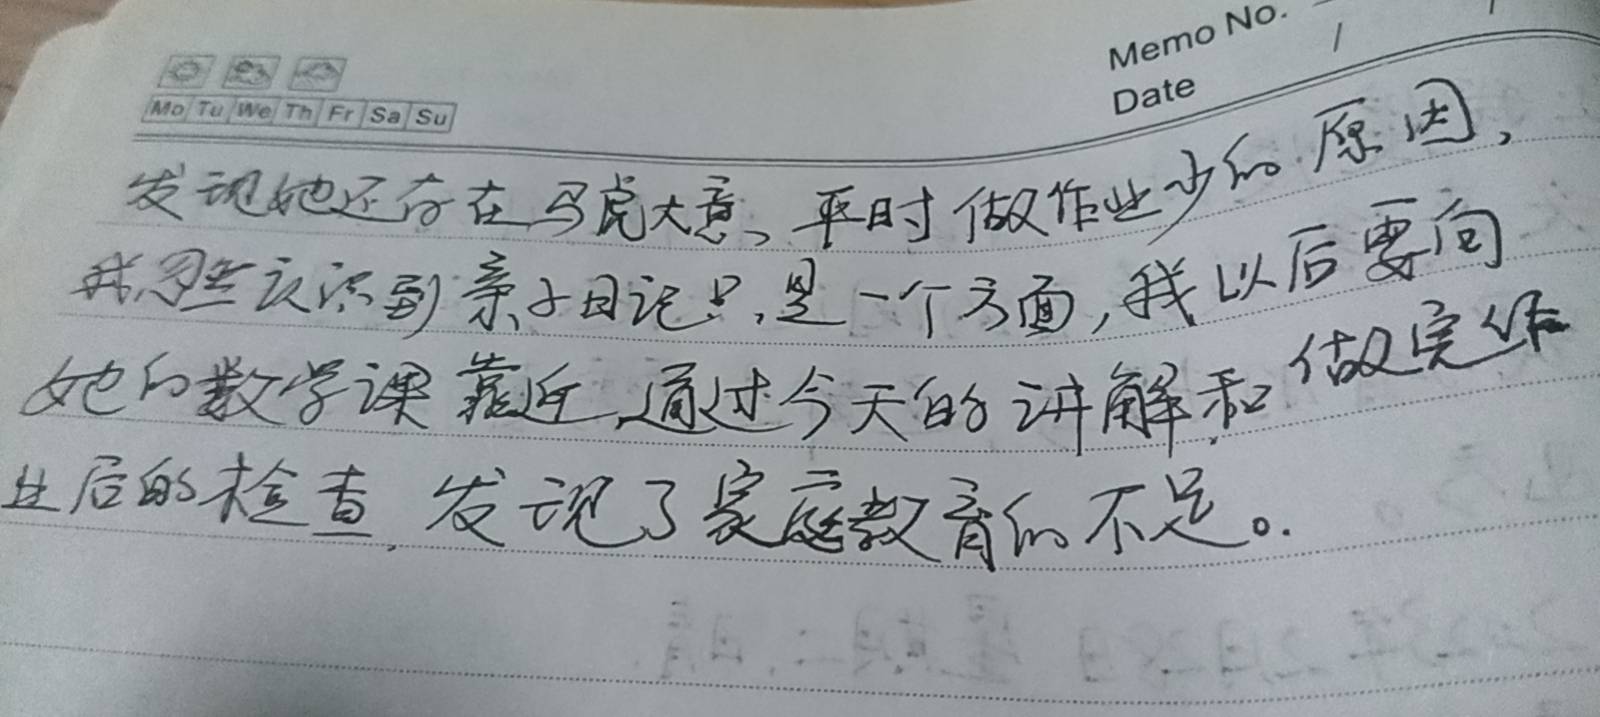 Memo No.
Date / /
Mo Tu We Th Fr Sa Su
发现她还存在马虎大意、平时做作业少的原因,
我忽然认识到亲子日记只是一个方面,我以后要向
她的数学课靠近,通过今天的讲解和做完作
业后的检查,发现了家庭教育的不足。